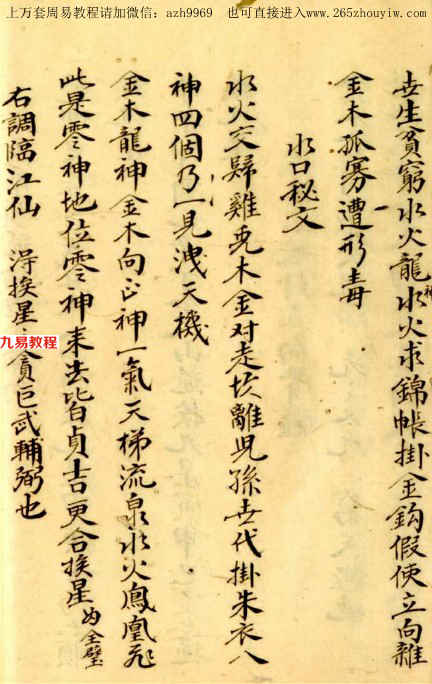 上万套周易教程请加微信：azh9969　也可直接进入www.265zhouyiw.com
世生貧窮水火龍神水火求錦帳掛金鈎假使立向離
金木孤寡遭形毒
水口秘文
水火交歸雞兎木金对走坎離児孫世代掛朱衣八
神四個乃一見洩天機
金木龍神金木向正神一氣天梯流泉水火鳳凰飛
此是零神地位零神来去皆貞吉更合挨星為全璧
右調臨江仙　得挨星貪巨武輔弼也
九易教程网